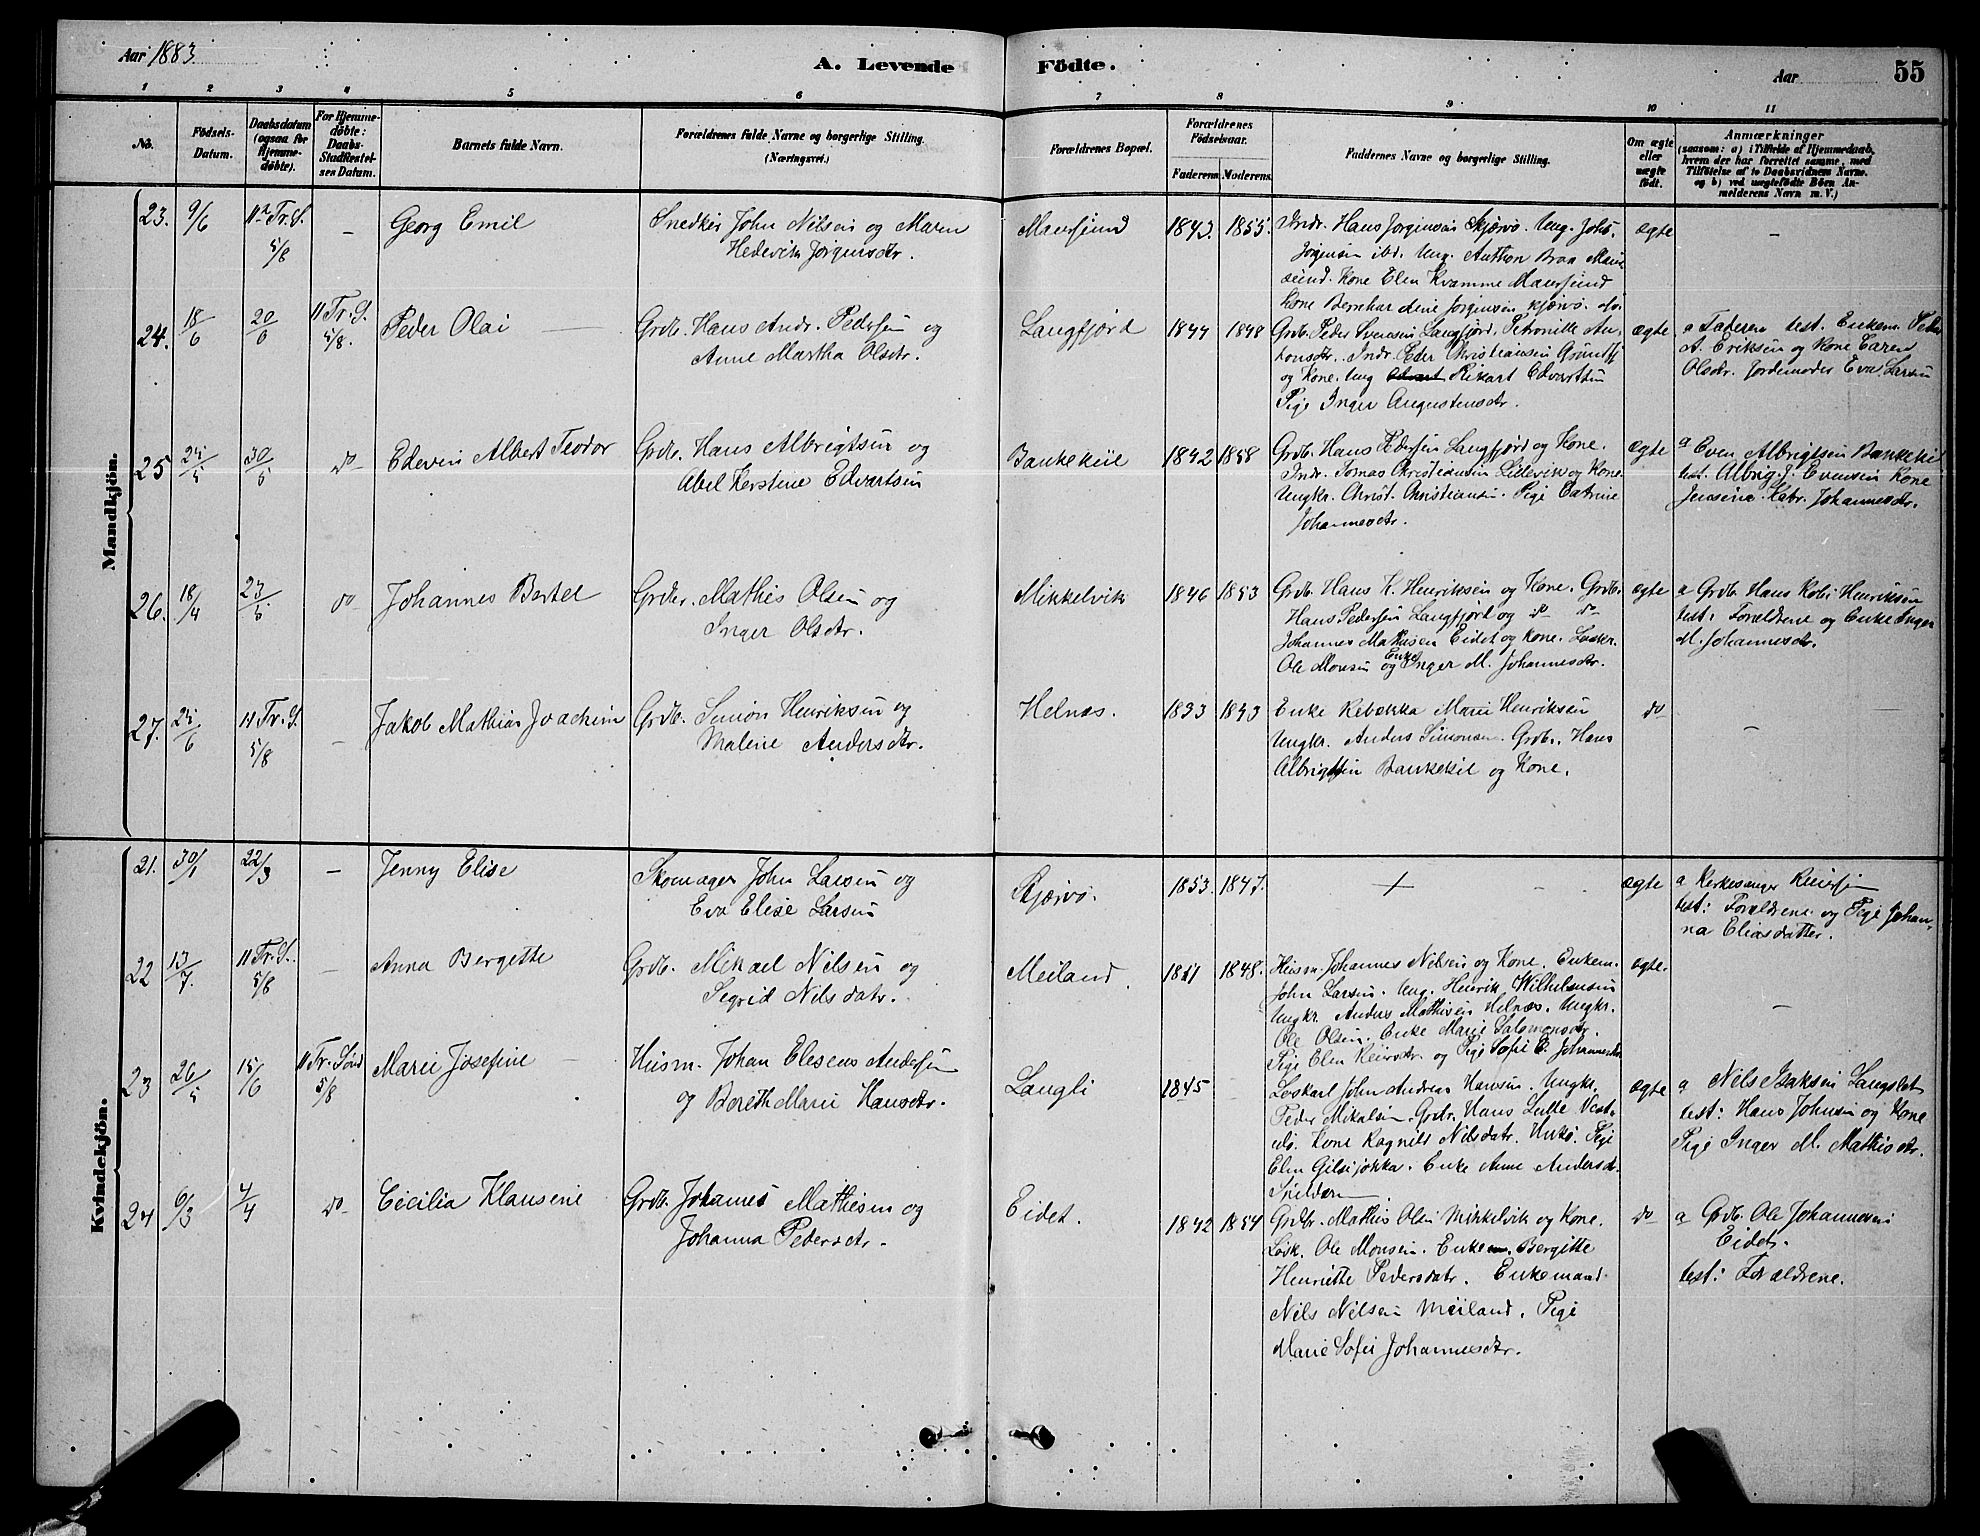 Aar 1883.
A. Levende Födte.
Aar 55
1 2 3 4 5 6 7 8 9 10 11
No. Födsels-Datum. Daabsdatum (ogsaa for Hjemmedöbte). For Hjemmedöbte: Daabs-Stadfæstelses Datum. Barnets fulde Navn. Forældrenes fulde Navne og borgerlige Stilling. (Næringsvei.) Forældrenes Bopæl. Forældrenes Födselsaar. Faderens Moderens. Faddernes Navne og borgerlige Stilling. Om ægte eller uægte födt. Anmærkninger (saasom: a) i Tilfælde af Hjemmedaab, hvem der har forrettet samme, med Tilföielse af to Daabsvidners Navne, og b) ved uægtefödte Börn Anmelderens Navn m. V.)
Mandkjön.
23. 9/6 11te Tr. S. 5/8 – Georg Emil
Snedker John Nilsen og Maren
Hedevik Jørgensdtr.
Maursund 1843. 1855.
Indr. Hans Jørginsen Skjærvø. Ung. Johs.
Jørgensen ibd. Ung. Anthon Braa Maur
sund. Kone Elen Kvamme Maursund
Kone Bernhardine Jørginsen Skjærvø.
ægte –
24. 18/6 20/6 11 Tr. S. 5/8. Peder Olai
Grdb. Hans Andr. Pedersen og
Anne Martha Olsdtr.
Langfjord 1844 1848
Grdb. Peder Svensen Langfjord. Petronille An
tonsdtr. Indr. Peder Christiansen Grundfj
og Kone. Ung Rikart Edvartsen
Pige Inger Augustensdtr.
ægte
a Faderen test. Enkem. Peder
A. Eriksen og Kone Caren
Olsdtr. Jordemoder Eva Larsen
25 25/5 30/5 do Edevin Albert Teodor
Grdbr. Hans Albrigtsen og
Abel Kerstine Edvartsen
Bankekeil 1842 1858
Grdb. Hans Pedersen Langfjord og Kone.
Indr. Tomas Christiansen Lillevik og Kone
Ungkr. Christ. Christiansen. Pige Catrine
Johannesdtr.
ægte
a Even Albrigtsen Bankekeil
test. Albrigt J. Evensen Kone
Jensine Katr. Johannesdtr.
26. 18/4 23/5 do Johannes Bertel
Grdbr. Mathis Olsen og
Inger Olsdtr.
Mikkelvik 1846 1853
Grdb. Hans K. Henriksen og Kone. Grdb.
Hans Pedersen Langfjord og do do
Johannes Mathisen Eidet og Kone. Løskr.
Ole Monsen og Enke Inger M. Johannesdtr.
ægte
a Grdb. Hans Kobi Henriksen
test: Forældrene og Enke Inger
M. Johannesdtr.
27. 25/6 11 Tr. S. 5/8 – Jakob Mathias Joachim
Grdb. Simon Henriksen og
Malene Andersdtr.
Helnæs. 1833 1843
Enke Rebekka Marie Henriksen
Ungkr. Anders Simonsen. Grdb. Hans
Albrigtsen Bankekeil og Kone.
do –
Kvindekjön.
21. 30/1 22/3 – Jenny Elise
Skomager John Larsen og
Eva Elise Larsen
Skjærvø. 1853. 1847.
+ –
ægte
a Kirkesanger Reiersen
test: Forældrene og Pige Johan
na Eliasdatter.
22 13/7. 11 Tr. S. 5/8 – Anna Bergette
Grdb. Mikael Nilsen og
Sigrid Nilsdatr.
Meiland. 1841 1848.
Huusm. Johannes Nilsen og Kone. Enkem.
John Larsen. Ung. Henrik Wilhelmsen
Ungkr. Anders Mathisen Helnæs. Ungkr.
Ole Olsen. Enke Marie Salomonsdtr.
Pige Elen Reiersdtr. og Pige Sofie E. Johannesdtr
ægte. –
23 26/5 15/6 11 Tr. Sønd 5/8 Marie Josefine
Huism. Johan Elesens Andersen
og Bereth Marie Hansdtr.
Langli 1845 –
Løskarl John Andreas Hansen. Ungkr.
Peder Mikalsen. Grdr. Hans Lulle Vest
uløi. Kone Ragnild Nilsdatr. Pige
Elen Gilsijokka. Enke Anne Andersdt.
Spildern
ægte
a Nils Isaksen Langslet
test: Hans Johnsen og Kone
Pige Inger M. Mathisdtr.
24 6/3 4/4 do Cecilia Klausene
Grdb. Johanes Mathisen og
Johanna Pedersdtr.
Eidet. 1842 1854
Grdbr. Mathis Olsen Mikkelvik og Kone.
Løsk. Ole Monsen. Enke Bergitte
Henriette Pedersdatr. Enkemand
Nils Nilsen Meiland. Pige
Marie Sofie Johannesdtr.
do
a Grdb. Ole Johannesen
Eidet.
test: Forældrene.